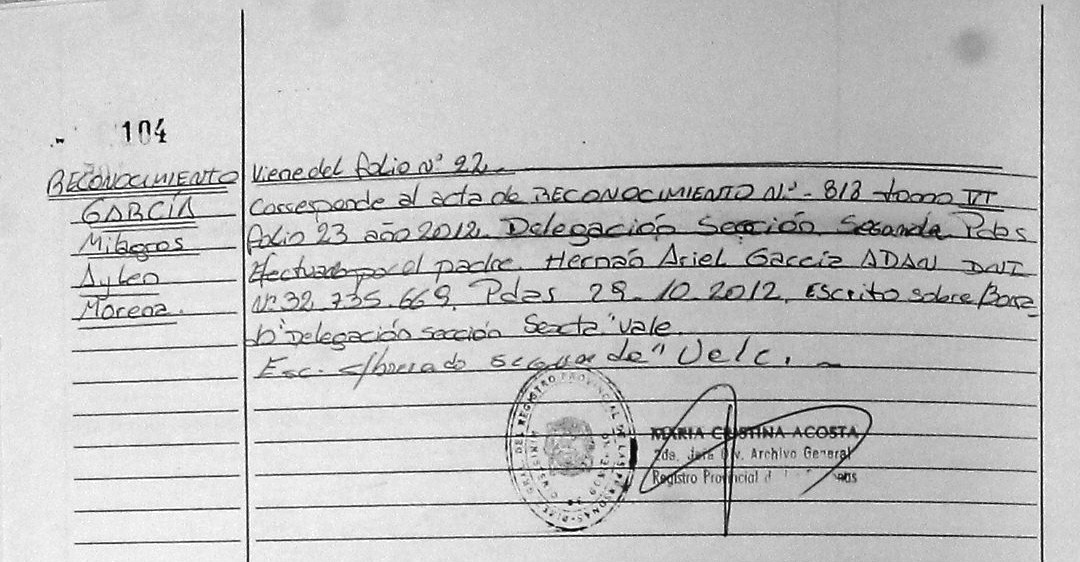 104
RECONOCIMIENTO
GARCÍA
Milagros
Aylen
Morena.
Viene del folio Nº 22.
Corresponde al acta de RECONOCIMIENTO Nº - 813 tomo VI
folio 23 año 2012. Delegación Sección Segunda Pdas
Efectuado por el padre, Hernán Ariel García ADAN DNI
Nº 32.735.669. Pdas 29.10.2012. Escrito sobre/Borra
do "Delegación sección Sexta" vale
Esc. s/borrado segunda"
REGISTRO PROVINCIAL DE LAS PERSONAS
MARIA CRISTINA ACOSTA
2da. Jefa Div. Archivo General
Registro Provincial